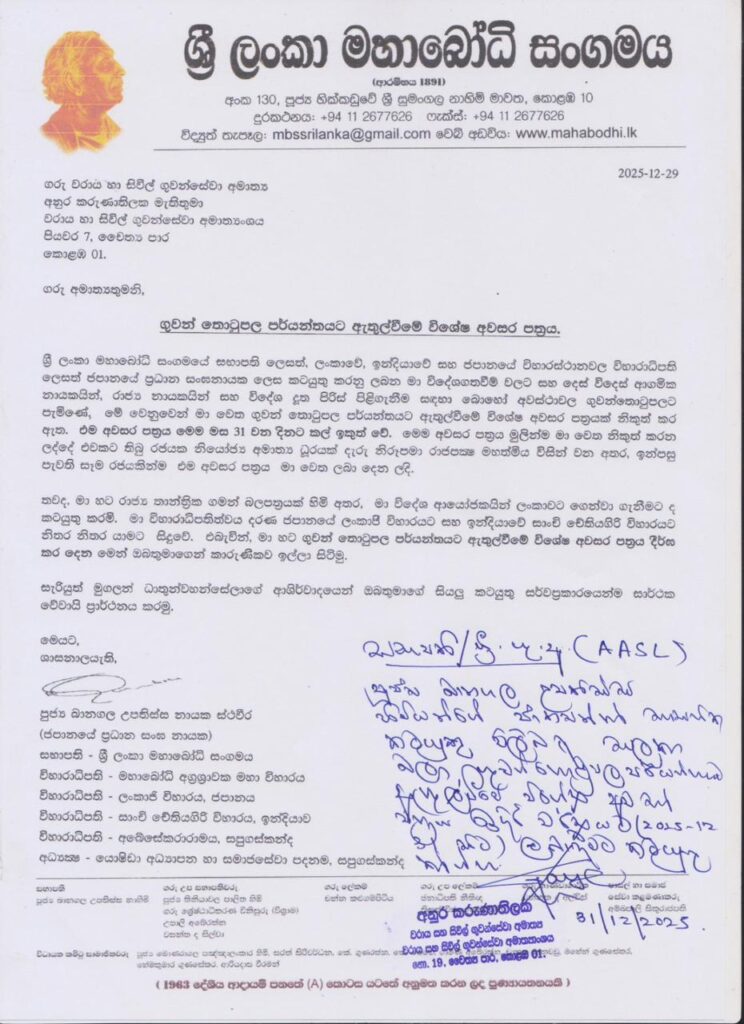 ශ්‍රී ලංකා මහාබෝධි සංගමය
(ආරම්භය 1891)
අංක 130, පූජ්‍ය හික්කඩුවේ ශ්‍රී සුමංගල නාහිමි මාවත, කොළඹ 10
දුරකථනය: +94 11 2677626 ෆැක්ස්: +94 11 2677626
විද්‍යුත් තැපෑල: mbssrilanka@gmail.com වෙබ් අඩවිය: www.mahabodhi.lk
2025-12-29
ගරු වරාය හා සිවිල් ගුවන්සේවා අමාත්‍ය
අනුර කරුණාතිලක මැතිතුමා
වරාය හා සිවිල් ගුවන්සේවා අමාත්‍යාංශය
පියවර 7, චෛත්‍ය පාර
කොළඹ 01.
ගරු අමාත්‍යතුමනි,
ගුවන් තොටුපල පර්යන්තයට ඇතුල්වීමේ විශේෂ අවසර පත්‍රය.
ශ්‍රී ලංකා මහාබෝධි සංගමයේ සභාපති ලෙසත්, ලංකාවේ, ඉන්දියාවේ සහ ජපානයේ විහාරස්ථානවල විහාරාධිපති
ලෙසත් ජපානයේ ප්‍රධාන සංඝනායක ලෙස කටයුතු කරනු ලබන මා විදේශගතවීම් වලට සහ දෙස් විදෙස් ආගමික
නායකයින්, රාජ්‍ය නායකයින් සහ විදේශ දූත පිරිස් පිළිගැනීම සඳහා බොහෝ අවස්ථාවල ගුවන්තොටුපලට
පැමිණේ, මේ වෙනුවෙන් මා වෙත ගුවන් තොටුපල පර්යන්තයට ඇතුල්වීමේ විශේෂ අවසර පත්‍රයක් නිකුත් කර
ඇත. එම අවසර පත්‍රය මෙම මස 31 වන දිනට කල් ඉකුත් වේ. මෙම අවසර පත්‍රය මුලින්ම මා වෙත නිකුත් කරන
ලද්දේ එවකට තිබූ රජයක නියෝජ්‍ය අමාත්‍ය ධූරයක් දැරූ නිරූපමා රාජපක්ෂ මහත්මිය විසින් වන අතර, ඉන්පසු
පැවති සෑම රජයකින්ම එම අවසර පත්‍රය මා වෙත ලබා දෙන ලදි.
තවද, මා හට රාජ්‍ය තාන්ත්‍රික ගමන් බලපත්‍රයක් හිමි අතර, මා විදේශ ආයෝජකයින් ලංකාවට ගෙන්වා ගැනීමට ද
කටයුතු කරමි. මා විහාරාධිපතිත්වය දරණ ජපානයේ ලංකාජි විහාරයට සහ ඉන්දියාවේ සාංචි චේතියගිරි විහාරයට
නිතර නිතර යාමට සිදුවේ. එබැවින්, මා හට ගුවන් තොටුපල පර්යන්තයට ඇතුල්වීමේ විශේෂ අවසර පත්‍රය දීර්ඝ
කර දෙන මෙන් ඔබතුමාගෙන් කාරුණිකව ඉල්ලා සිටිමු.
සැරියුත් මුගලන් ධාතූන්වහන්සේලාගේ ආශිර්වාදයෙන් ඔබතුමාගේ සියලු කටයුතු සර්වප්‍රකාරයෙන්ම සාර්ථක
වේවායි ප්‍රාර්ථනය කරමු.
මෙයට,
ශාසනාලයැති,
පූජ්‍ය බානගල උපතිස්ස නායක ස්ථවිර
(ජපානයේ ප්‍රධාන සංඝ නායක)
සභාපති - ශ්‍රී ලංකා මහාබෝධි සංගමය
විහාරාධිපති - මහාබෝධි අග්‍රශ්‍රාවක මහා විහාරය
විහාරාධිපති - ලංකාජි විහාරය, ජපානය
විහාරාධිපති - සාංචි චේතියගිරි විහාරය, ඉන්දියාව
විහාරාධිපති - අබේසේකරාරාමය, සපුගස්කන්ද
අධ්‍යක්ෂ - යොෂිඩා අධ්‍යාපන හා සමාජසේවා පදනම, සපුගස්කන්ද
සභාපති/ශ්‍රී. (AASL)
පූජ්‍ය බානගල උපතිස්ස
කටයුතු පිලිබඳ සලකා
බලා ගුවන්තොටුපල පර්යන්තයට
ඇතුල්වීමේ විශේෂ අවසර
(2025-12
කටයුතු
31/12/2025.
සභාපති
පූජ්‍ය බානගල උපතිස්ස නාහිමි
ගරු උප සභාපතිවරු
ගරු ශ්‍රේෂ්ඨාධිකරණ විනිසුරු (විශ්‍රාම)
උපාලි අබේරත්න
වසන්ත ද සිල්වා
ගරු ලේකම්
ගරු උප ලේකම්
ජනාධිපති නීතිඥ
සේවා කළමනාකරු
අනුර කරුණාතිලක
වරාය සහ සිවිල් ගුවන්සේවා අමාත්‍ය
වරාය සහ සිවිල් ගුවන්සේවා අමාත්‍යාංශය
නො. 19, චෛත්‍ය පාර, කොළඹ 01.
විධායක කමිටු සාමාජිකවරු
හේමකුමාර ගුණසේකර, ආරියදාස වීරමන්
( 1963 දේශීය ආදායම් පනතේ (A) කොටස යටතේ අනුමත කරන ලද පුණ්‍යායතනයකි )